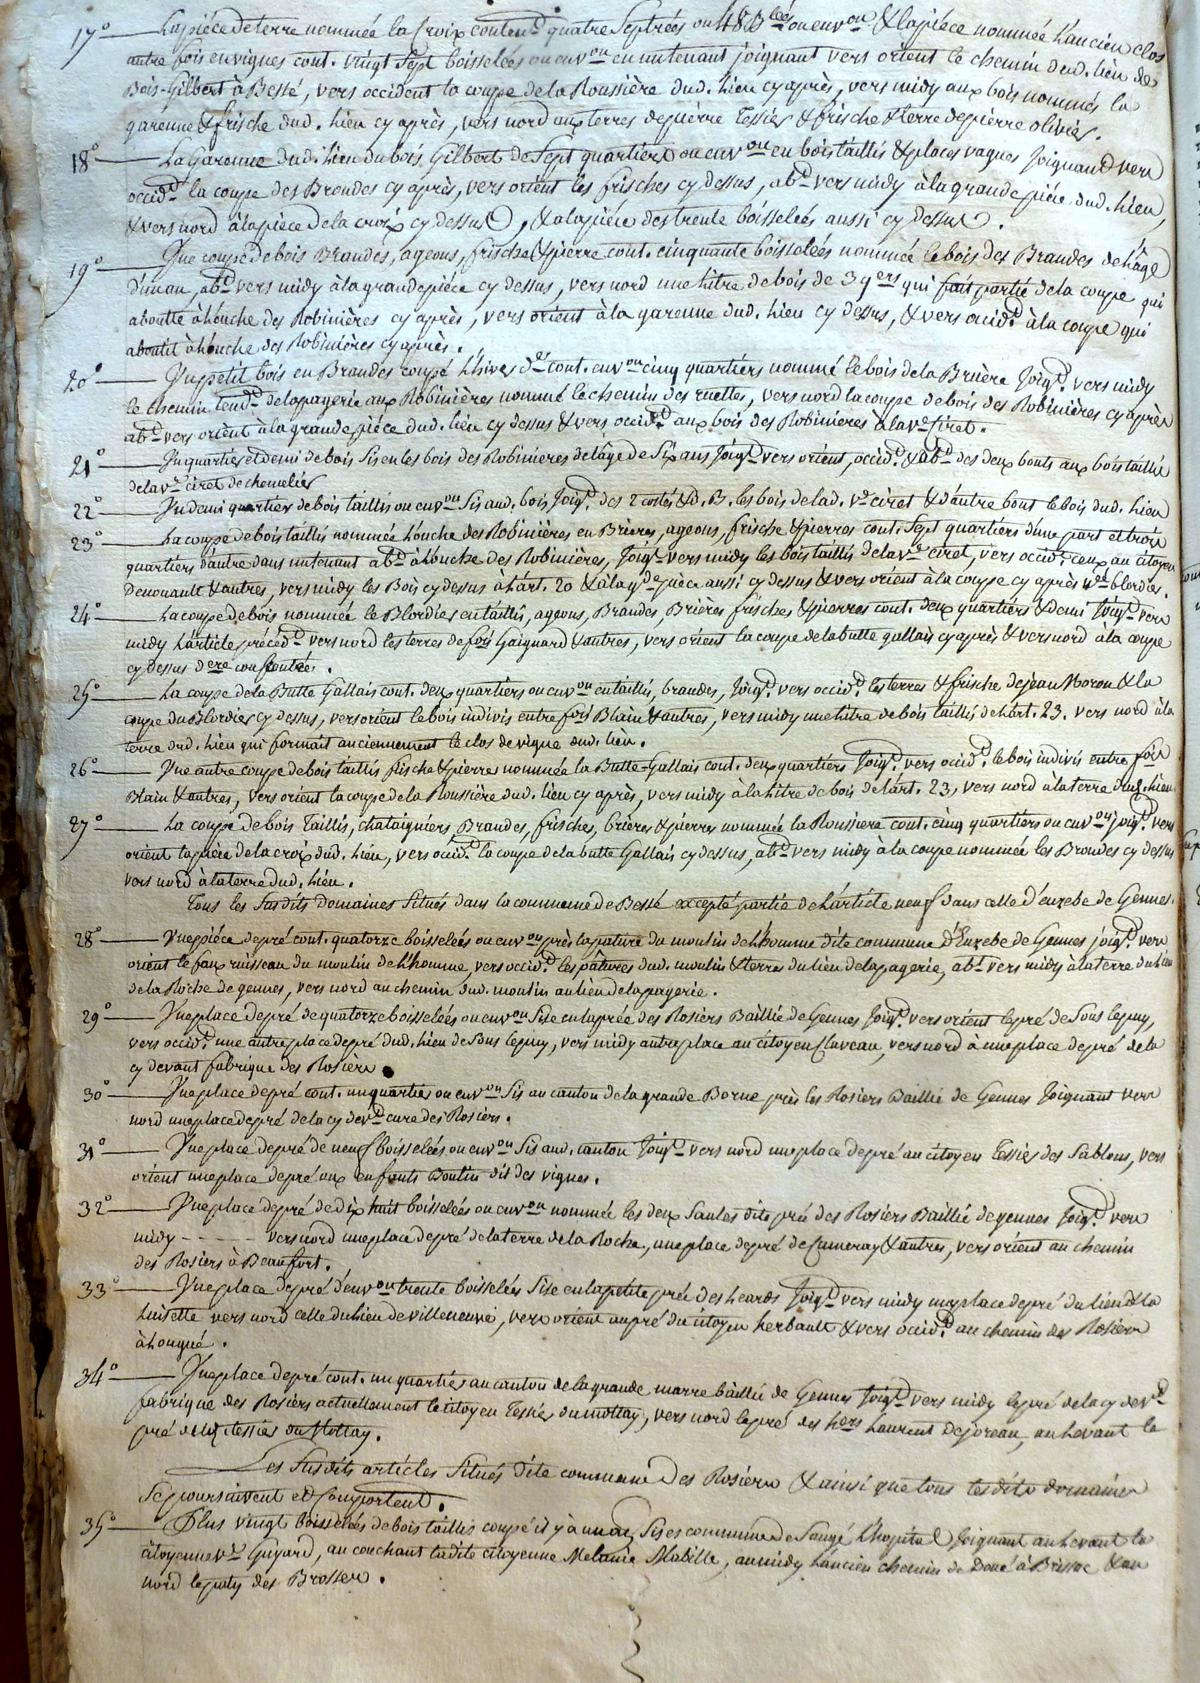 17° La pièce de terre nommée la Croix conten.d quatre Septrées ou 48 B.lées ou env.on & la pièce nommée L'ancien clos
autre fois en vignes cont. vingt Sept boisselées ou env.on en un tenant joignant vers orient le chemin dud. lieu de
Bois-Gilbert à Bessé, vers occident la coupe de la Roussière dud. lieu cy après, vers midy aux bois nommés la
garenne & frische dud. lieu cy après, vers nord aux terres de pierre Tessier & frische & terre de pierre olivier.
18° La Garenne dud. lieu du bois Gilbert de Sept quartiers ou env.on en bois taillis & places vagues Joignand vers
occid.t la coupe des Brandes cy après, vers orient les frisches cy dessus, ab.t vers midy à la grande pièce dud. lieu,
& vers nord à la pièce de la croix cy dessus, & a la pièce des trente boisselées aussi cy dessus.
19° Une coupe de bois Brandes, ageons, frische & pierre cont. cinquante boisselées nommée le bois des Brandes de l'âge
d'un an, ab.t vers midy à la grande pièce cy dessus, vers nord une litre de bois de 3 q.ers qui fait partie de la coupe qui
aboutte à l'ouche des Robinières cy après, vers orient à la garenne dud. lieu cy dessus, & vers occid.t à la coupe qui
aboutit à l'ouche des Robinières cy après.
20° Un petit bois en Brandes coupé l'hiver d.er cont. env.on cinq quartiers nommé le bois de la Brière Joig.t vers midy
le chemin tend.t de la pagerie aux Robinières nommé le chemin des ruettes, vers nord la coupe de bois des Robinières cy après
ab.t vers orient à la grande pièce dud. lieu cy dessus & vers occid.t aux bois des Robinières à la v.e Ciret.
21° Un quartier et demi de bois Sis en les bois des Robinières de l'âge de Six ans Joig.t vers orient, occid.t & ab.t des deux bouts aux bois taillis
de la v.e Ciret de chemelier
22° Un demi quartier de bois taillis ou env.on Sis aud. bois Joig.t des 2 cottés & d. B. les bois de lad. v.e Ciret & d'autre bout le bois dud. lieu
23° La coupe de bois taillis nommée l'ouche des Robinières en Brières, ageons, frische & pierres cont. Sept quartiers d'une part et trois
quartiers d'autre dans un tenant ab.t à l'ouche des Robinières, Joig.t vers midy les bois taillis de la v.e Ciret, vers occid.t ceux au citoyen
Denouault & autres, vers midy les Bois cy dessus à l'art. 20 & à la g.de pièce aussi cy dessus & vers orient à la coupe cy après n.ée blordies.
24° La coupe de bois nommée le Blordies en taillis, ageons, Brandes, Brières frisches & pierres cont. deux quartiers & demi Joig.t vers
midy l'article précéd.t vers nord les terres de fois Gaignard & autres, vers orient la coupe de la butte gallais cy après & vers nord à la coupe
cy dessus d.ere confrontée.
25° La coupe de la Butte Gallais cont. deux quartiers ou env.on en taillis, brandes, Joig.t vers occid.t les terres & frische de jean Moron & la
coupe du Blordies cy dessus, vers orient le bois indivis entre fois Blain & autres, vers midy une litre de bois taillis de l'art. 23. vers nord à la
terre dud. lieu qui formait anciennement le clos de vigne dud. lieu.
26° Une autre coupe de bois taillis frische & pierres nommée la Butte-Gallais cont. deux quartiers Joig.t vers occid.t le bois indivis entre fois
Blain & autres, vers orient la coupe de la Roussière dud. lieu cy après, vers midy à la litre de bois de l'art. 23, vers nord à la terre dud. lieu
27° La coupe de bois Taillis, chataigniers, Brandes, frisches, brières & pierres nommée la Roussiere cont. cinq quartiers ou env.on joig.t vers
orient la pièce de la croix dud. lieu, vers occid.t la coupe de la butte Gallais cy dessus, ab.t vers midy à la coupe nommée les Brandes cy dessus
vers nord à la terre dud. lieu.
Tous les Susdits domaines Situés dans la commune de Bessé excepté partie de l'article neuf dans celle d'euzebe de Gennes.
28° Une pièce de pré cont. quatorze boisselées ou env.on près la pature du moulin de l'homme dite commune d'Euzebe de Gennes joig.t vers
orient le faux ruisseau du moulin de l'homme, vers occid.t les pâtures dud. moulin & terres du lieu de la pagerie, ab.t vers midy à la terre du lieu
de la Roche de gennes, vers nord au chemin dud. moulin au lieu de la pagerie.
29° Une place de pré de quatorze boisselées ou env.on Sise en la prée des Rosiers Baillée de Gennes Joig.t vers orient le pré de Sous le puy,
vers occid.t une autre place de pré dud. lieu de Sous le puy, vers midy autre place au citoyen Claveau, vers nord à une place de pré de la
cy devant fabrique des Rosiers
30° Une place de pré cont. un quartier ou env.on Sis au canton de la grande Borne près les Rosiers Baillée de Gennes Joignant vers
nord une place de pré de la cy dev.t cure des Rosiers.
31° Une place de pré de neuf Boisselées ou env.on Sis aud. canton Joig.t vers nord une place de pré au citoyen Tessier des Sablons, vers
orient une place de pré aux enfants Boutin dit des vignes.
32° Une place de pré de dix huit boisselées ou env.on nommée les deux Saules dite prée des Rosiers Baillée de gennes Joig.t vers
midy - - - - - vers nord une place de pré de la terre de la Roche, une place de pré de Cumeray & autres, vers orient au chemin
des Rosiers à Beaufort.
33° Une place de pré d'env.on trente boisselées Sise en la petite prée des heards Joig.t vers midy une place de pré du lieu de la
huisette vers nord celle du lieu de villeneuve, vers orient au pré du citoyen herbault & vers occid.t au chemin des Rosiers
à Longué.
34° Une place de pré cont. un quartier au canton de la grande marre baillée de Gennes Joig.t vers midy le pré de la cy dev.t
fabrique des Rosiers actuellement le citoyen Tessier du mottay, vers nord le pré des h.ers Laurent Dejoreau, au levant le
pré du cit. tessier du Mottay.
Les Susdits articles Situés dite commune des Rosiers & ainsi que tous lesdits domaines
Se poursuivent et Comportent.
35° Plus vingt boisselées de bois taillis coupé il y à un an, Sises commune de Saugé L'hopital Joignant au levant la
citoyenne v.e Guyard, au couchant ladite citoyenne Melanie Mabille, au midy l'ancien chemin de Doué à Brissac & au
nord le paty des Brosses.